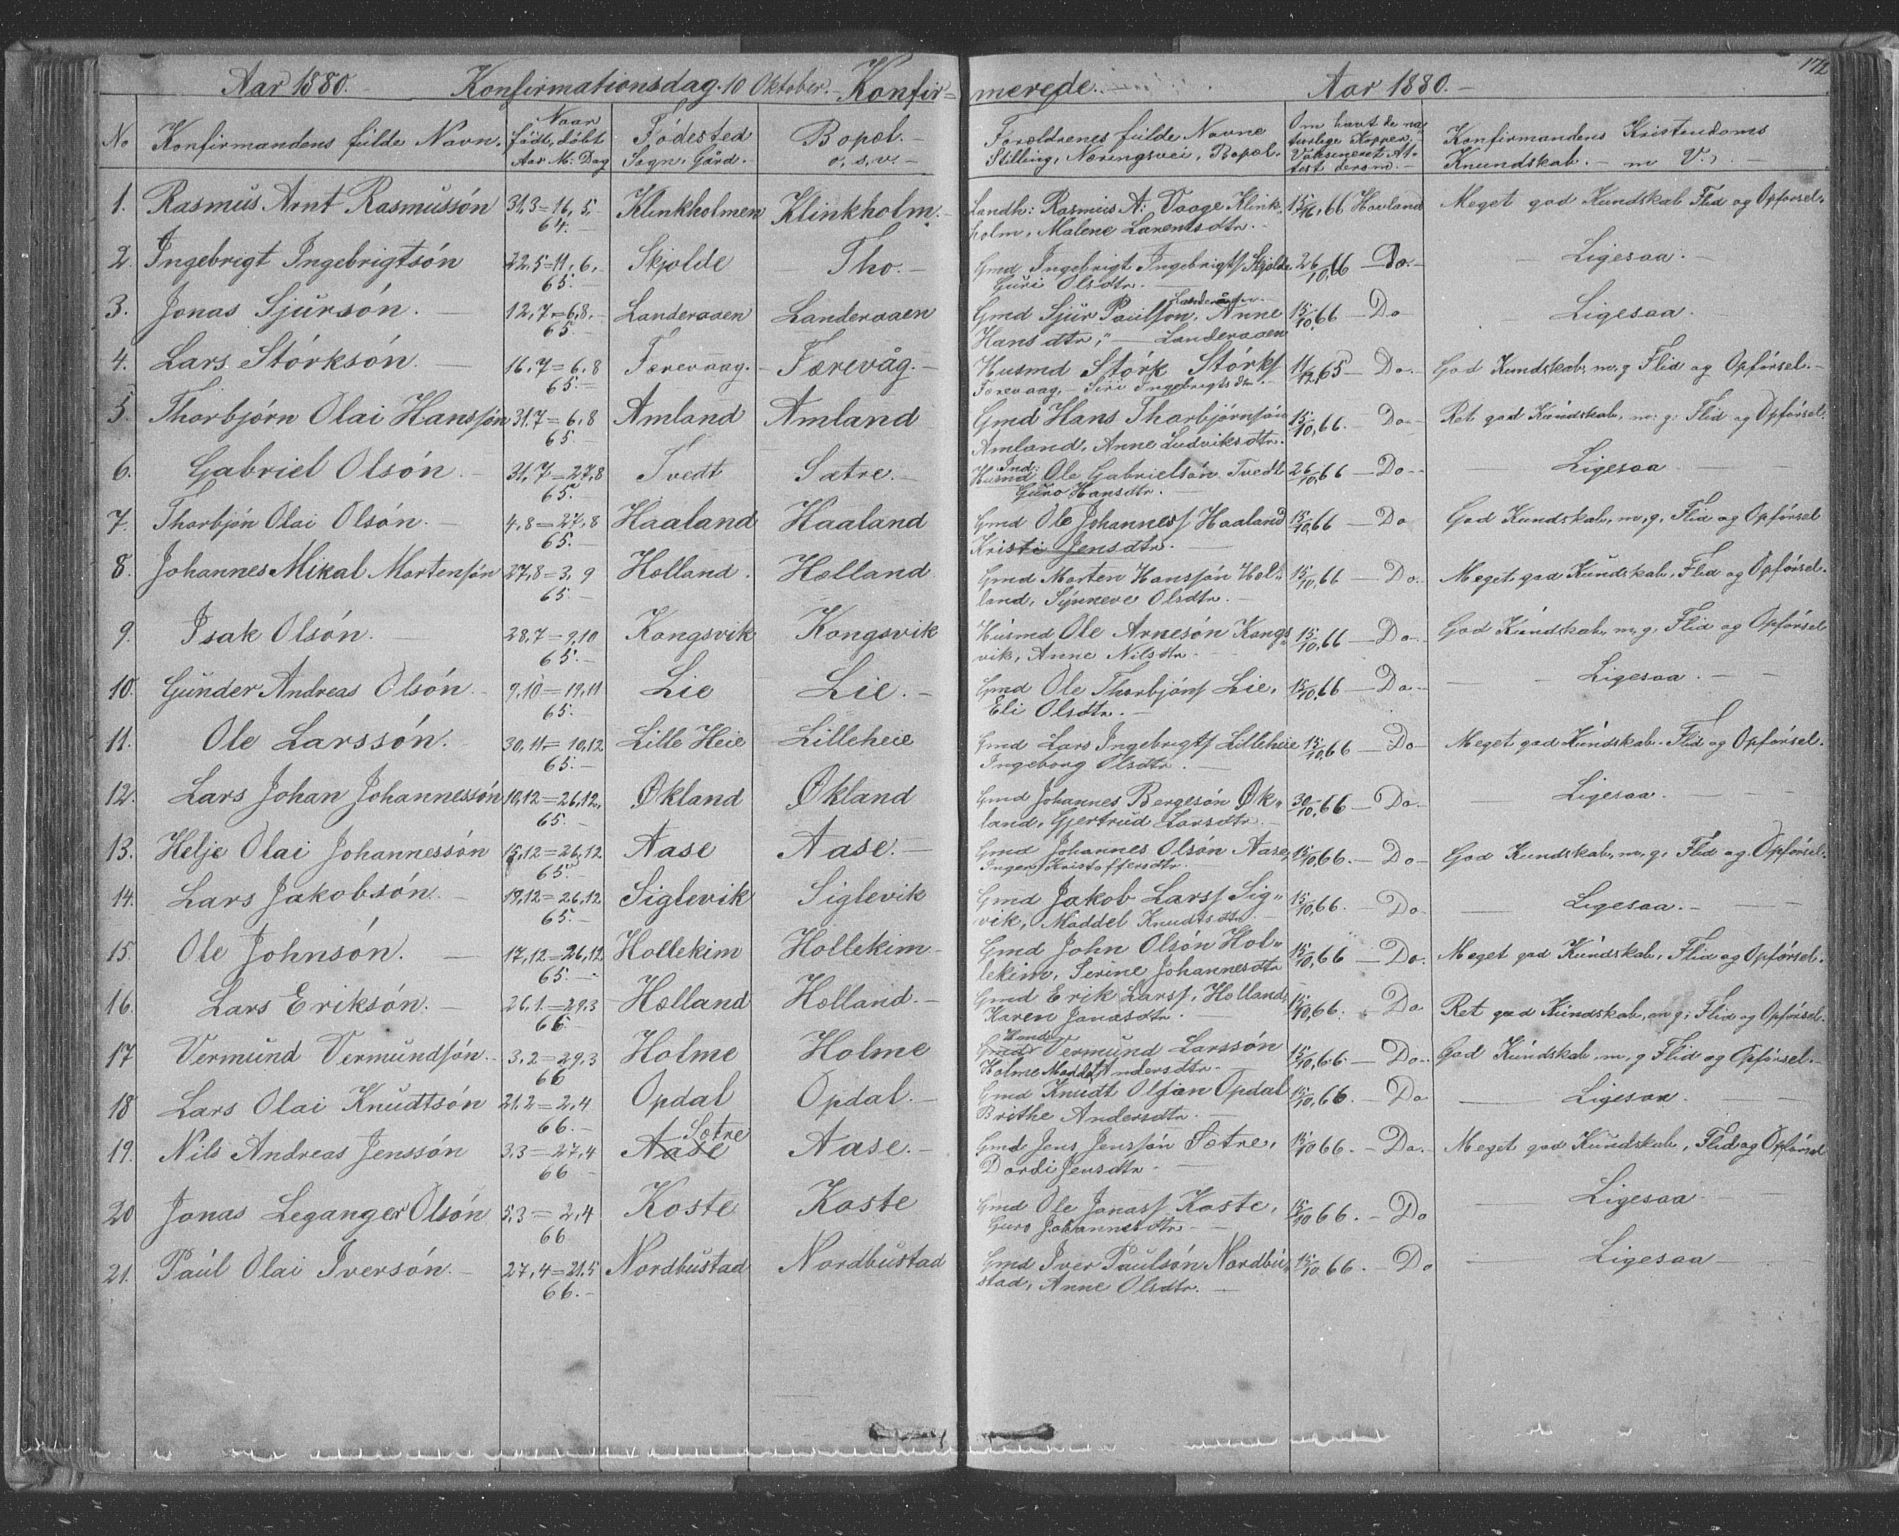 Aar 1880. Konfirmationsdag. 10 Oktober. Konfir= merede. Aar 1880.
172
No Konfirmandens fulde Navn. Naar født, døbt Aar M. Dag Fødested Sogn. Gård. Bopæl. o. s. v. Forældrenes fulde Navne Stilling, Næringsvei, Bopæl. Om havt de naturlige Kopper, Vaksineret Attest derom. Konfirmandens Kristendoms Knundskab. m V.
1. Rasmus Arnt Rasmussón 31,3=16,5. Klinkholmen Klinkholm. Landh: Rasmus A: Vaage Klink- 15/10,66 Havland Meget god Kundskab Flid og Opførsel.
64. holm, Malene Larentsdtr.
2. Ingebrigt Ingebrigtsón 22,5=11,6, Skjolde Tho. Gmd Ingebrigt Ingebrigts Skjolde 26/10,66 Do. Ligesaa.
65. Guri Olsdtr.
3. Jonas Sjursón. 12,7=6,8. Landeraaen Landeraaen Gmd Sjur Paulsson, Anne 15/10,66 Do Ligesaa.
65. Hansdtr, Landeraaen
4. Lars Störksón. 16,7=6,8 Færevaag. Færevåg. Husmd Störk Störks 11/12,65 Do. God Kundskab, m, g Flid og Opførsel.
65. Færevaag, Siri Ingebrigtsdtr.
5. Thorbjørn Olai Hanssón 31,7=6,8 Amland Amland Gmd Hans Thorbjørnsón 15/10,66. Do. Ret god Kundskab, m: g: Flid og Opførsel.
65. Amland, Anne Ludviksdtr.
6. Gabriel Olsón. 31,7=27,8 Tvedt Satre. Ind: Husmd Ole Gabrielsón Tvedt 26/10,66 Do. Ligesaa
65. Guro Hansdtr.
7. Thorbjón Olai Olsón. 4,8=27,8 Haaland Haaland Gmd Ole Johanness Haaland 15/10,66 Do God Kundskab, m, g, Flid og Opførsel
65. Kristi Jensdtr.
8. Johannes Mikal Mortensón 27,8=3,9 Hælland. Hælland Gmd Morten Hanssón Hæl- 15/10,66 Do. Meget god Kundskab, Flid og Opførsel.
65. land, Synneve Olsdtr.
9. Isak Olsón. 28,7=9,10 Kongsvik Kongsvik Husmd Ole Arnesón Kongs 15/10,66 Do. God Kundskab, m, g, Flid og Opførsel
65. vik, Anne Nilsdtr.
10. Gunder Andreas Olsón 9,10=19,11 Lie Lie. Gmd Ole Thorbjöns Lie, 15/10,66 Do. Ligesaa.
65. Eli Olsdtr.
11. Ole Larssón. 30,11=10,12 Lille Heie Lilleheie Gmd Lars Ingebrigts Lilleheie 15/10,66 Do Meget god Kundskab. Flid og Opførsel.
65. Ingeborg Olsdtr.
12. Lars Johan Johannessón 10,12=26,12. Økland Økland Gmd Johannes Bergesón Øk- 30/10,66 Do. Ligesaa.
65. land, Gjertrud Larsdtr.
13. Helje Olai Johannessón 15,12=26,12 Aase Aase. Gmd Johannes Olsón Aase, 15/10,66. Do God Kundskab, m, g, Flid og Opførsel.
65. Inger Kristoffersdtr.
14. Lars Jakobsón. 19,12=26,12 Siglevik Siglevik Gmd Jakob Larss Sig- 15/10,66. Do. Ligesaa.
65. vik, Maddel Knudtsdtr
15. Ole Johnsón. 17,12=26,12 Hollekim Hollekim Gmd John Olsón Hol- 15/10,66 Do. Meget god Kundskab, Flid og Opførsel.
65. lekim, Serine Johannesdtr
16. Lars Eriksón. 26,1=29,3 Hælland Hælland. Gmd Erik Larss, Hælland, 15/10,66. Do Ret god Kundskab, m g; Flid og Opførsel.
66. Karen Jonasdtr.
17 Vermund Vermundsón. 3,2=29,3 Holme Holme Gmd Vermund Larssón 15/10,66. Do. God Kundskab, m, g Flid og Opførsel.
66 Holme Maddel Andersdtr.
18 Lars Olai Knudtsón 21,2=2,4 Opdal Opdal. Gmd Knudt Olsón Opdal 15/10,66. Do Ligesaa.
66. Brithe Andersdtr.
19. Nils Andreas Jenssón 3,3=27,4 Aase Sætre Aase. Gmd Jens Jenssón Sætre, 15/10 66. Do. Meget god Kundskab, Flid og Opførsel
66 Dordi Jensdtr
20 Jonas Leganger Olsón 5,3=2,4 Koste Koste Gmd Ole Jonass Koste, 15/10 66. Do Ligesaa
66 Guro Johannesdtr.
21. Paul Olai Iversón. 27,4=21,5 Nordbustad Nordbustad Gmd Iver Paulsón Nordbu- 15/10 66. Do Ligesaa
66. stad, Anne Olsdtr.